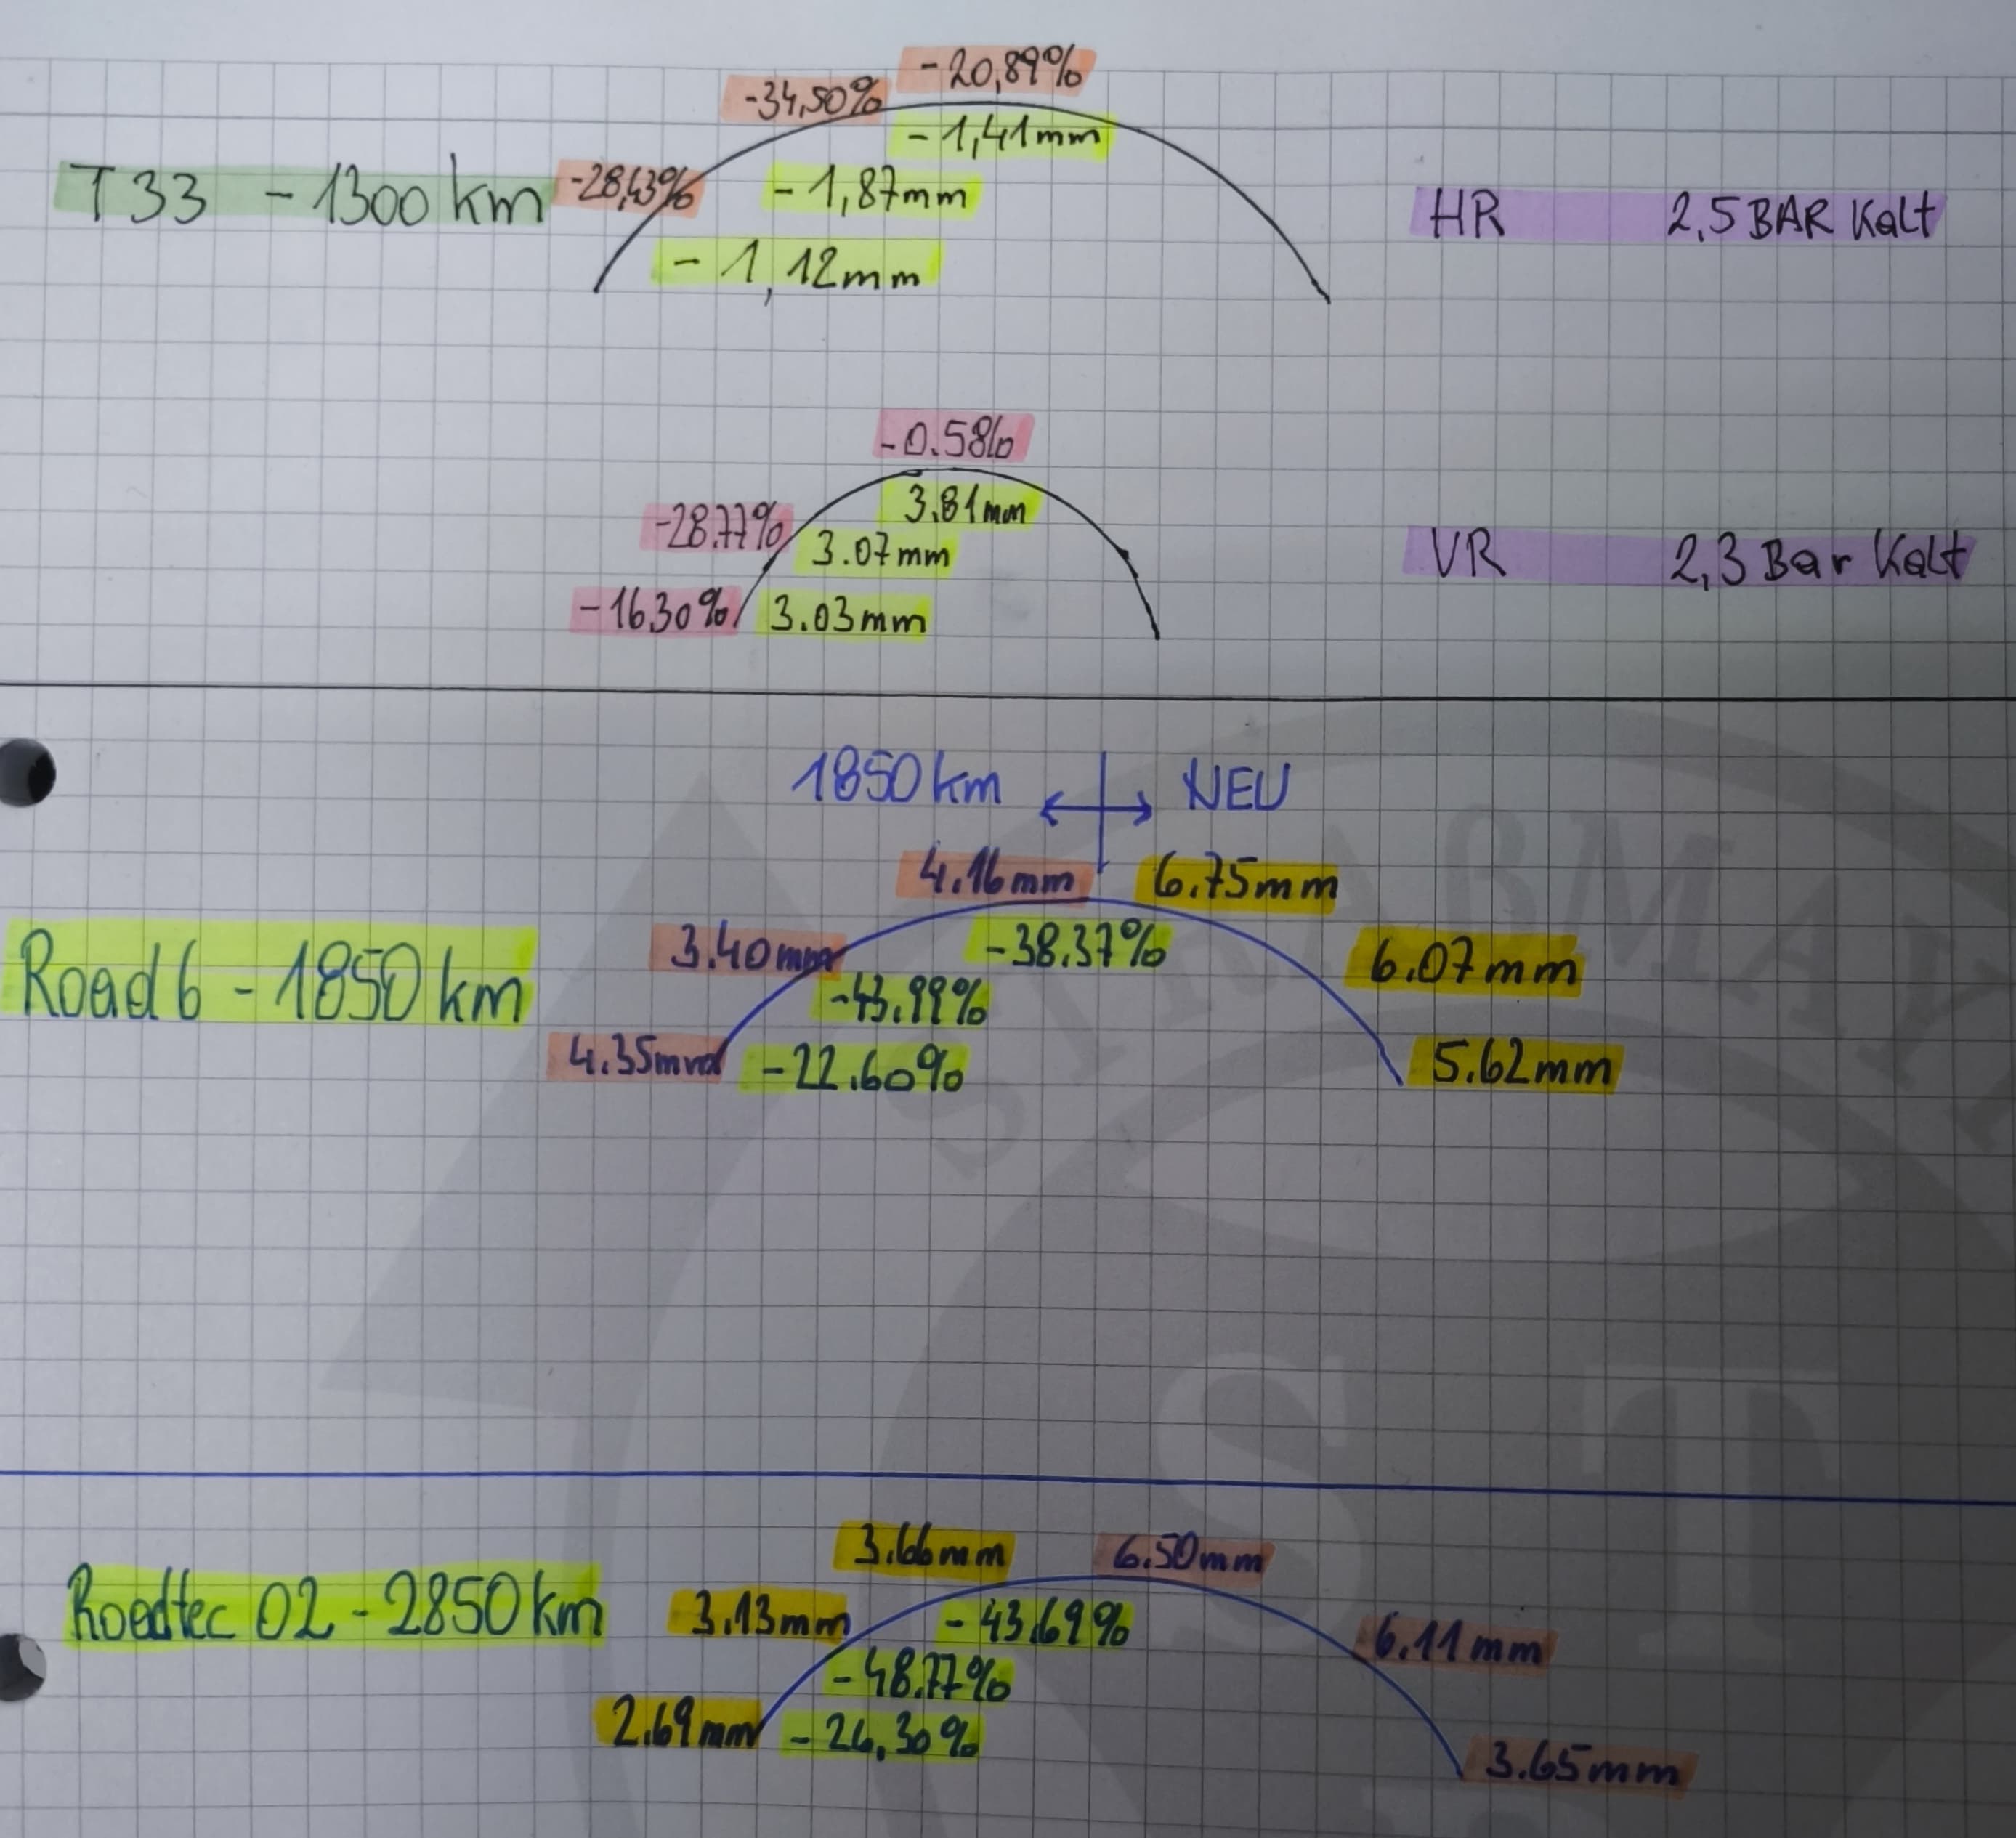 -20,89%
-34,50%
-1,41mm
T33 -1300km -28,43% -1,87mm HR 2,5 BAR Kalt
-1,12mm
-0.58%
-28.77% 3.81mm
3.07mm VR 2,3 Bar Kalt
-16.30% 3.03mm
1850km NEU
4.16mm 6.75mm
3.40mm -38.37% 6.07mm
Road 6 - 1850km -43.99%
4.35mm -22.60% 5.62mm
STRAßMAY
ST
3.66mm 6.50mm
Roadtec 02 - 2850km 3.13mm -43.69% 6.11mm
-48.77%
2.69mm -26,30% 3.65mm